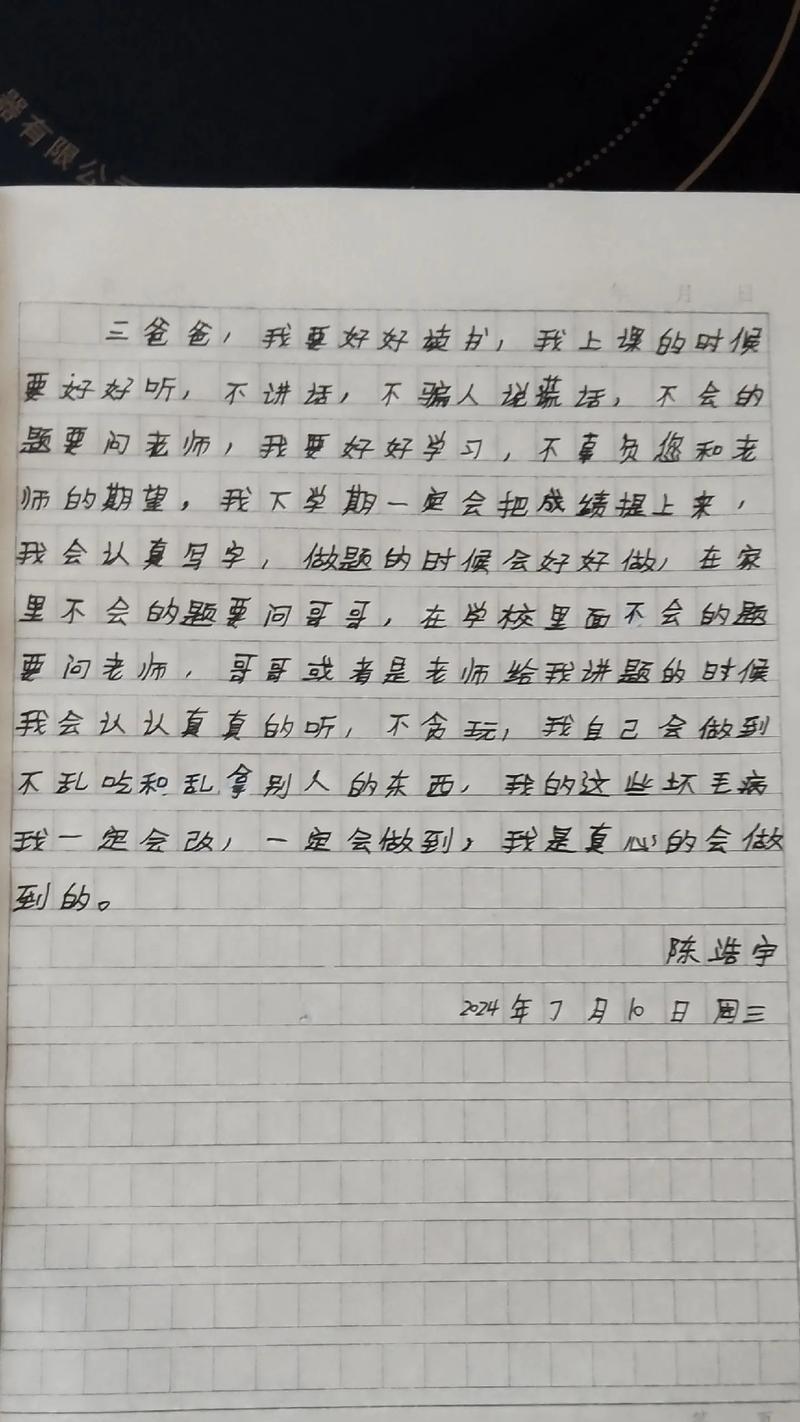 器有限公司
年 月 日
三爸爸，我要好好读书，我上课的时候
要好好听，不讲话，不骗人说谎话，不会的
题要问老师，我要好好学习，不辜负您和老
师的期望，我下学期一定会把成绩提上来，
我会认真写字，做题的时候会好好做，在家
里不会的题要问哥哥，在学校里面不会的题
要问老师，哥哥或者是老师给我讲题的时候
我会认认真真的听，不贪玩，我自己会做到
不乱吃和乱拿别人的东西，我的这些坏毛病
我一定会改，一定会做到，我是真心的会做
到的。
陈浩宇
2024年7月10日 周三